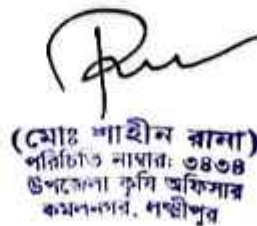 (মোঃ শাহীন রানা)
পরিচিতি নাম্বার: ৩৪৩৪
উপজেলা কৃষি অফিসার
কমলনগর, লক্ষ্মীপুর